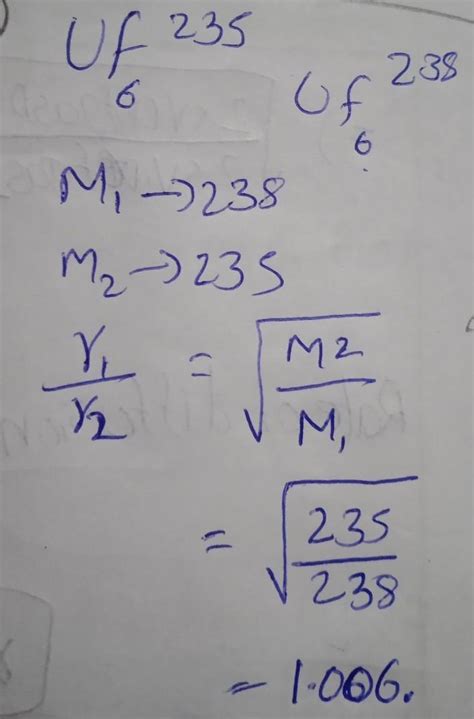 Uf₆ ²³⁵
Uf₆ ²³⁸
M₁ → 238
M₂ → 235
γ₁/γ₂ = √(M2/M₁)
= √(235/238)
= 1.006.